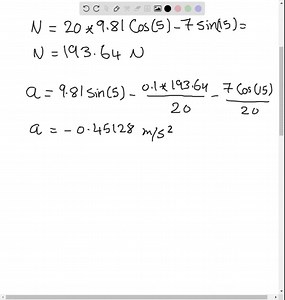 N = 20 * 9.81 Cos(5) - 7 sin(15) =
N = 193.64 N
a = 9.81 sin(5) - 0.1 * 193.64 / 20 - 7 Cos(15) / 20
a = - 0.45128 m/s²